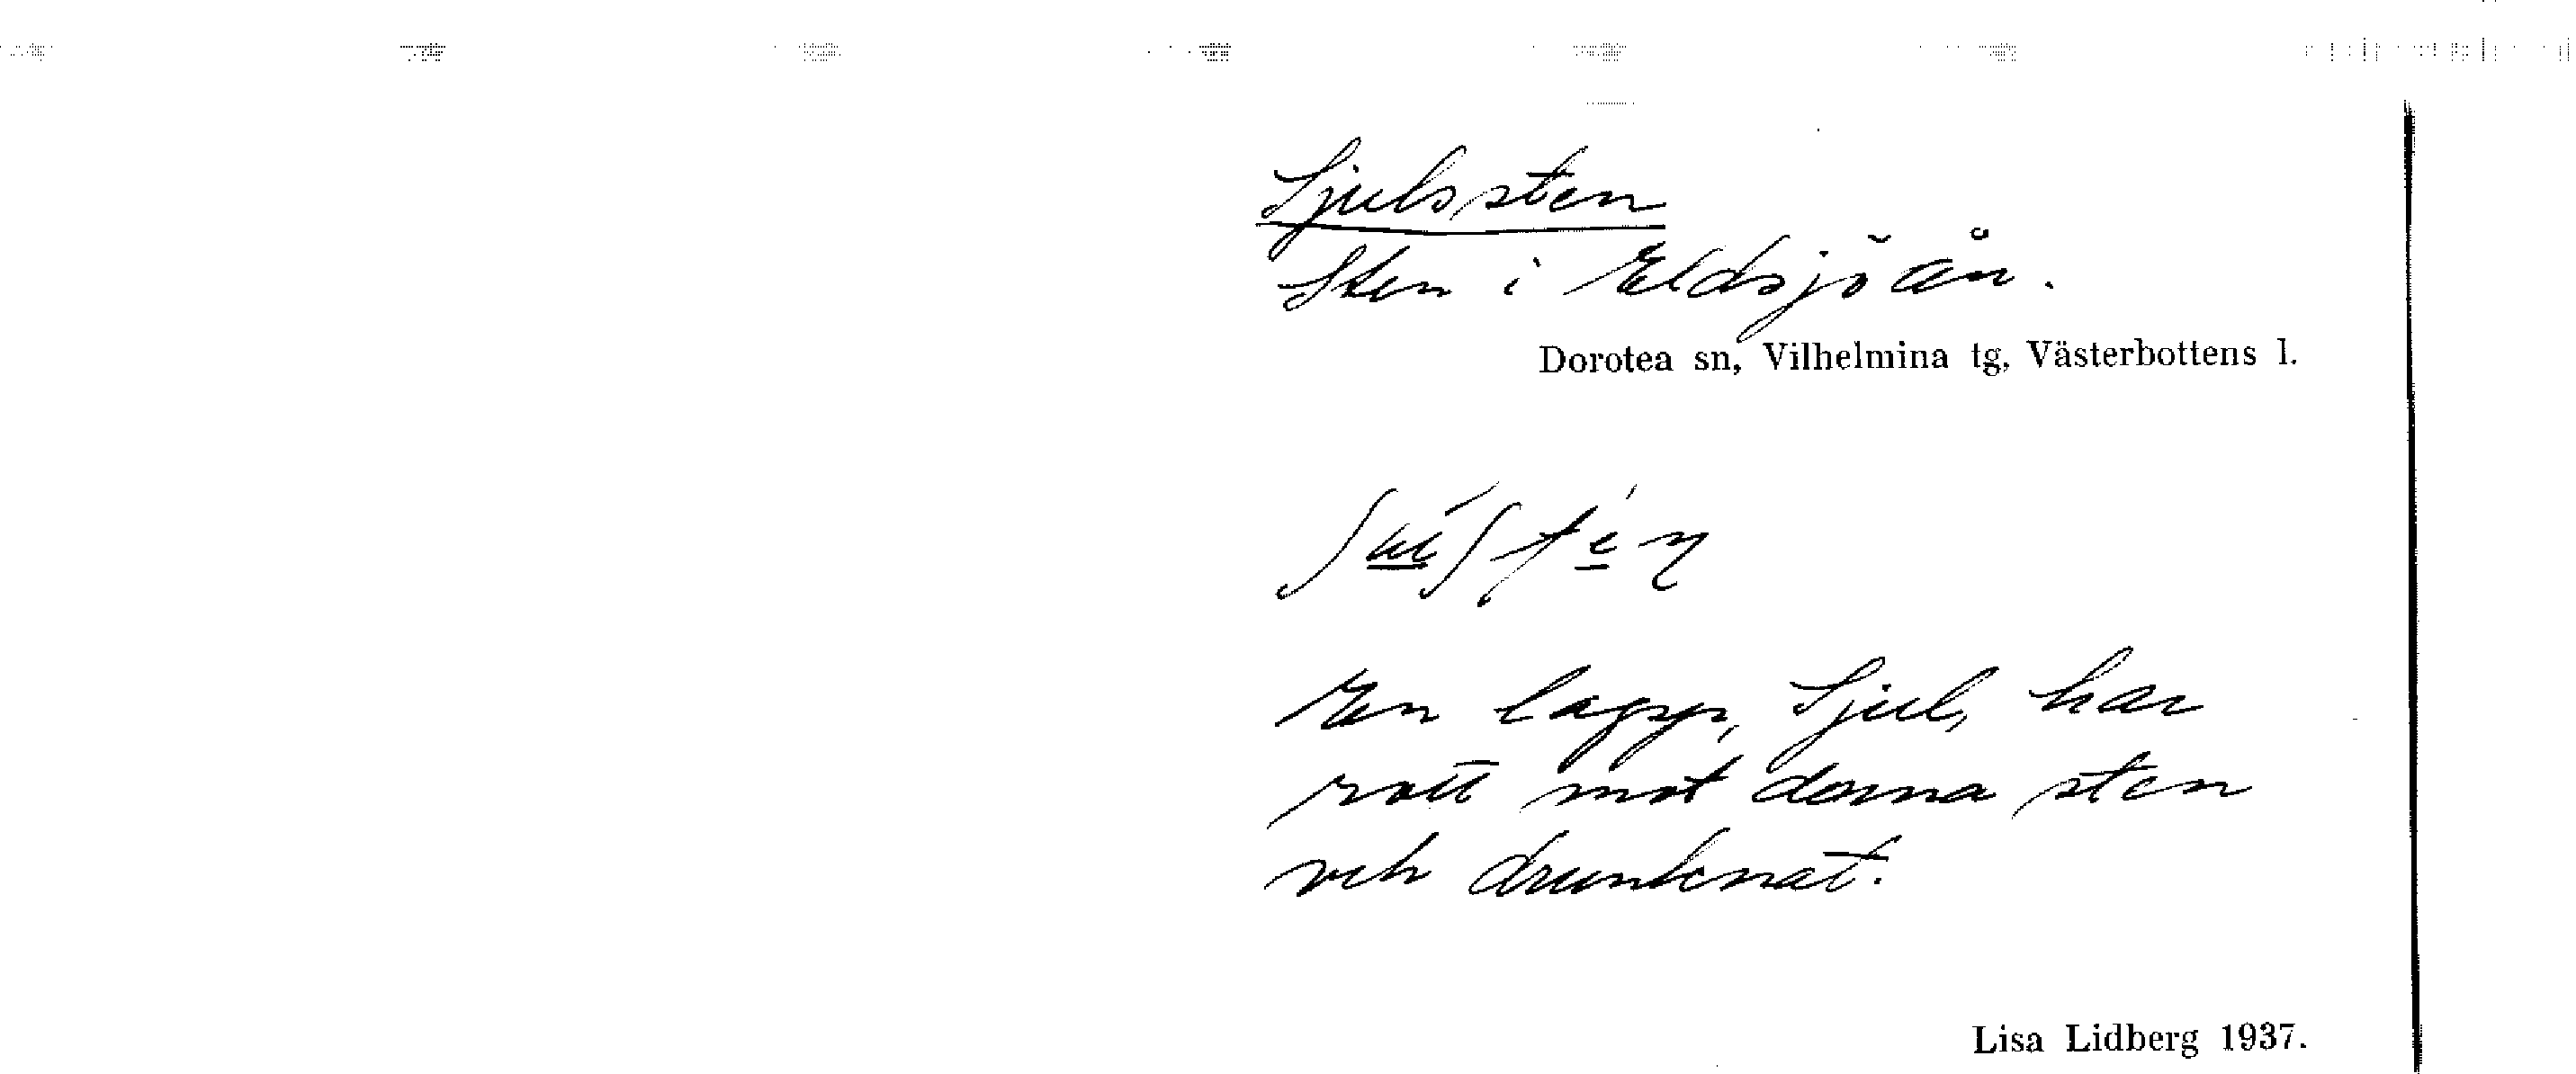 Sjulssten
Sten i Eldsjöån.
Dorotea sn, Vilhelmina tg, Västerbottens l.
En lapp, Sjul, har
rott mot denna sten
och drunknat.
Lisa Lidberg 1937.